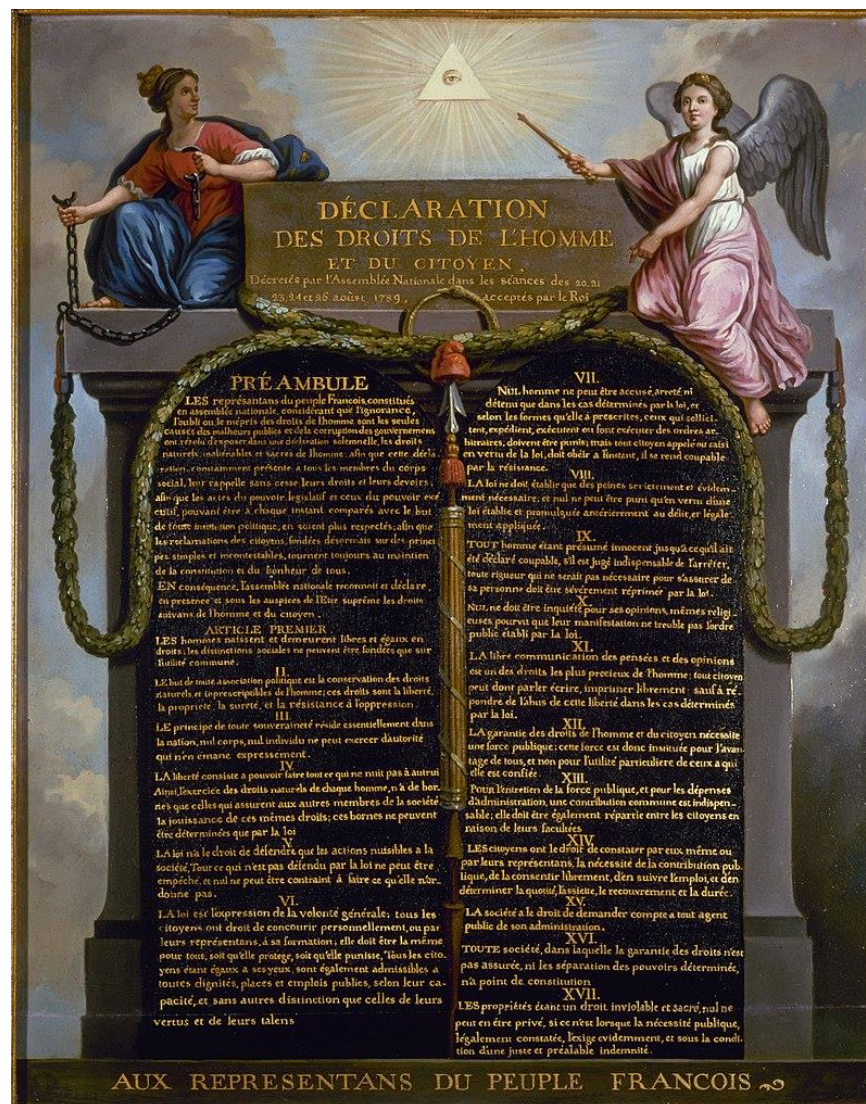 DÉCLARATION
DES DROITS DE L'HOMME
ET DU CITOYEN,
Décretés par l'Assemblée Nationale dans les séances des 20, 21
23, 24 et 26 août 1789, acceptés par le Roi
PRÉAMBULE
LES représantans du peuple François, constitués
en assemblée nationale, considérant que l'ignorance,
l'oubli ou le mépris des droits de l'homme sont les seules
causes des malheurs publics et de la corruption des gouvernemens
ont résolu d'exposer dans une déclaration solemnelle, les droits
naturels, inaliénables et sacrés de l'homme; afin que cette décla
ration, constamment présente a tous les membres du corps
social, leur rappelle sans cesse leurs droits et leurs devoirs;
afin que les actes du pouvoir législatif et ceux du pouvoir exé
cutif, pouvant être à chaque instant comparés avec le but
de toute institution politique, en soient plus respectés; afin que
les reclamations des citoyens, fondées désormais sur des princi
pes simples et incontestables, tournent toujours au maintien
de la constitution et du bonheur de tous.
EN conséquence, l'assemblée nationale reconnoit et déclare
en presence et sous les auspices de l'Etre suprême les droits
suivans de l'homme et du citoyen.
ARTICLE PREMIER
LES hommes naissent et demeurent libres et égaux en
droits; les distinctions sociales ne peuvent être fondées que sur
l'utilité commune.
II.
LE but de toute association politique est la conservation des droits
naturels et inprescriptibles de l'homme; ces droits sont la liberté,
la propriété, la sureté, et la résistance à l'oppression.
III.
LE principe de toute souveraineté réside essentiellement dans
la nation, nul corps, nul individu ne peut exercer d'autorité
qui n'en émane expressement.
IV.
LA liberté consiste a pouvoir faire tout ce qui ne nuit pas à autrui
Ainsi, l'exercice des droits naturels de chaque homme, n'a de bor-
nes que celles qui assurent aux autres membres de la société
la jouissance de ces mêmes droits; ces bornes ne peuvent
être déterminées que par la loi
V.
LA loi n'a le droit de défendre que les actions nuisibles a la
société. Tout ce qui n'est pas défendu par la loi ne peut être
empêché, et nul ne peut être contraint à faire ce qu'elle n'or-
donne pas.
VI.
LA loi est l'expression de la volonté générale; tous les
citoyens ont droit de concourir personnellement, ou par
leurs représentans, à sa formation; elle doit être la même
pour tous, soit qu'elle protege, soit qu'elle punisse, Tous les cito-
yens étant égaux a ses yeux, sont également admissibles a
toutes dignités, places et emplois publics, selon leur ca-
pacité, et sans autres distinction que celles de leurs
vertus et de leurs talens
VII.
NUL homme ne peut être accusé, arreté ni
détenu que dans les cas déterminés par la loi, et
selon les formes qu'elle à prescrites, ceux qui sollici-
tent, expédient, exécutent ou font exécuter des ordres ar-
bitraires, doivent être punis; mais tout citoyen appelé ou saisi
en vertu de la loi, doit obéir a l'instant, il se rend coupable
par la résistance.
VIII.
LA loi ne doit établir que des peines strictement et évidem-
ment nécessaire, et nul ne peut être puni qu'en vertu d'une
loi établie et promulguée antérierement au délit, et légale
ment appliquée.
IX.
TOUT homme étant présumé innocent jusqu'à ce qu'il ait
été déclaré coupable, s'il est jugé indispensable de l'arrêter,
toute rigueur qui ne serait pas nécessaire pour s'assurer de
sa personne doit être sévèrement réprimée par la loi.
X.
NUL ne doit être inquiété pour ses opinions, mêmes religi-
euses pourvu que leur manifestation ne trouble pas l'ordre
public établi par la loi.
XI.
LA libre communication des pensées et des opinions
est un des droits les plus precieux de l'homme; tout citoyen
peut dont parler écrire, imprimer librement sauf à ré
pondre de l'abus de cette liberté dans les cas déterminés
par la loi.
XII.
LA garantie des droits de l'homme et du citoyen nécessite
une force publique; cette force est donc instituée pour l'avan
tage de tous, et non pour l'utilité particuliere de ceux a qui
elle est confiée.
XIII.
POUR l'entretien de la force publique, et pour les dépenses
d'administration, une contribution commune est indispen-
sable; elle doit être également répartie entre les citoyens en
raison de leurs facultées
XIV.
LES citoyens ont le droit de constater par eux même ou
par leurs représentans, la nécessité de la contribution pub-
lique, de la consentir librement, d'en suivre l'emploi, et d'en
déterminer la quotité, l'assiete, le recouvrement et la durée.
XV.
LA société a le droit de demander compte a tout agent
public de son administration.
XVI.
TOUTE société, dans laquelle la garantie des droits n'est
pas assurée, ni les séparation des pouvoirs déterminée,
n'a point de constitution
XVII.
LES propriétés étant un droit inviolable et sacré, nul ne
peut en être privé, si ce n'est lorsque la nécessité publique,
légalement constatée, l'exige evidemment, et sous la condi
tion d'une juste et préalable indemnité.
AUX REPRESENTANS DU PEUPLE FRANCOIS